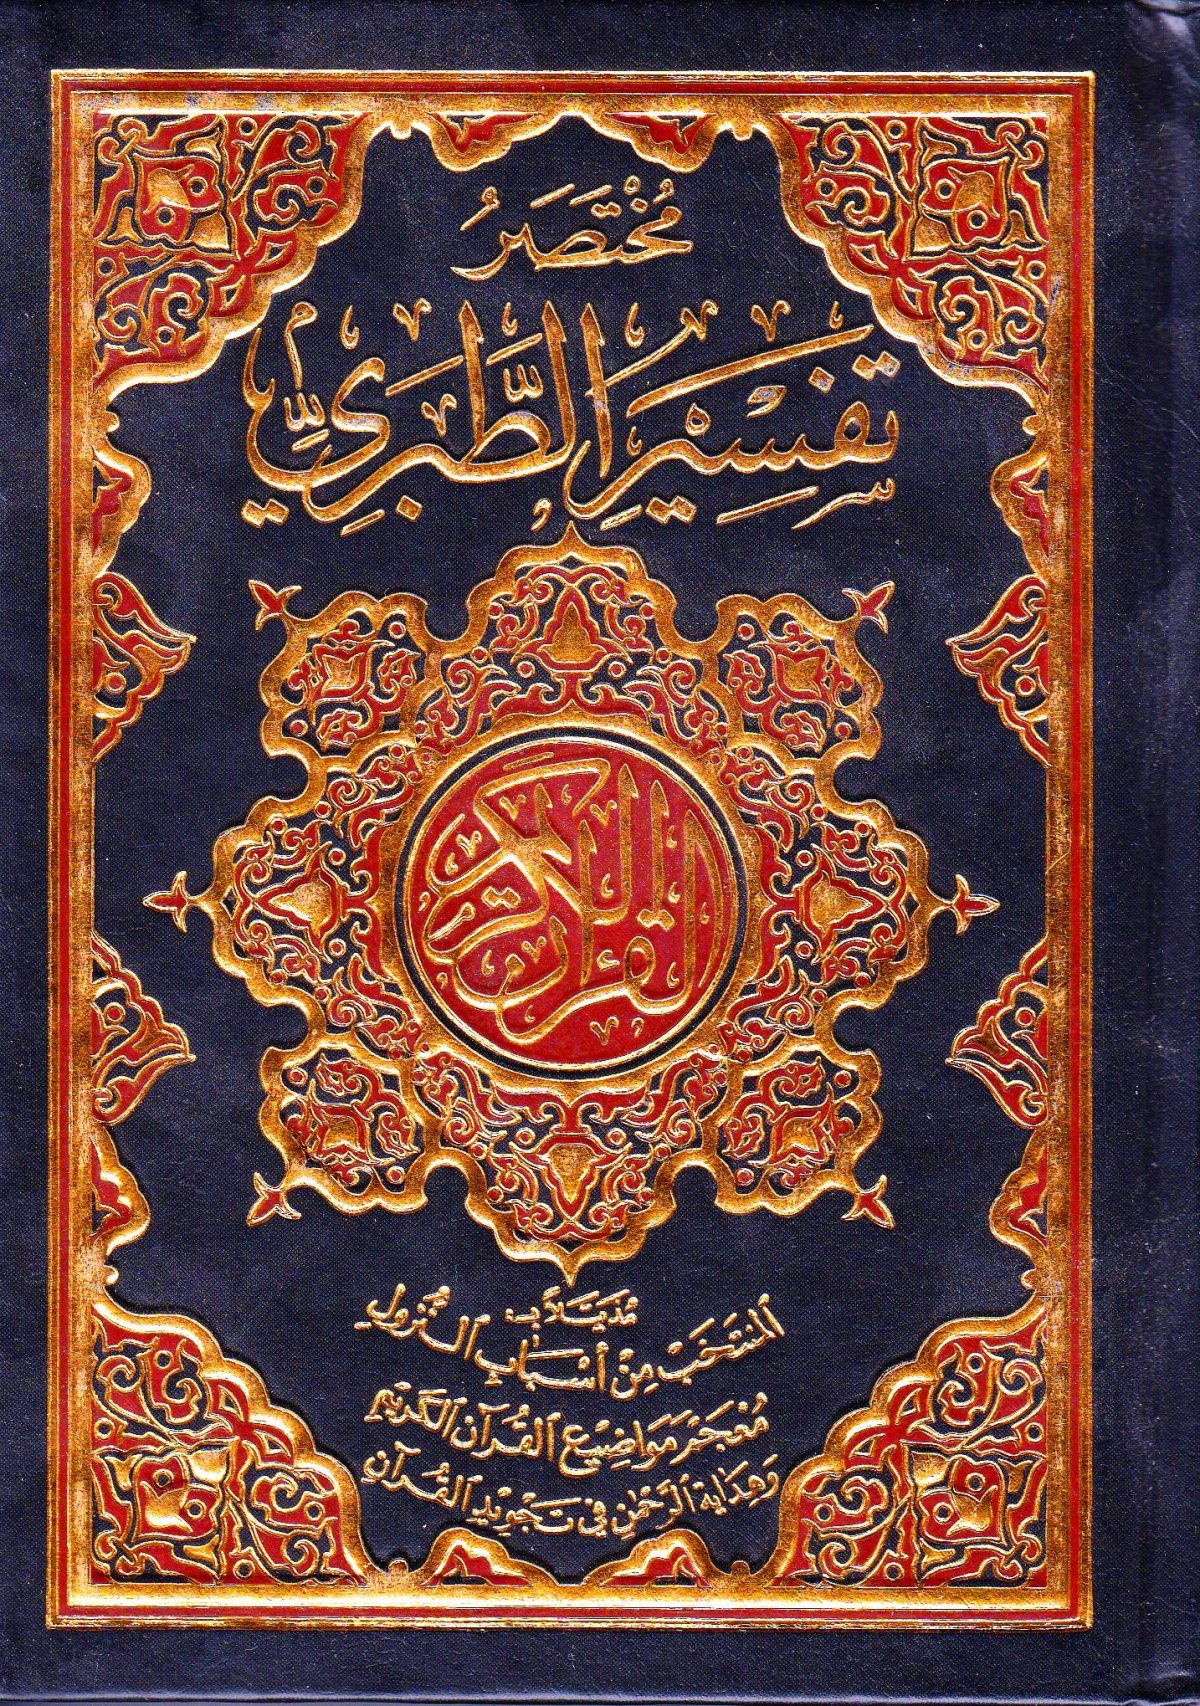 مُخْتَصَرُ
تَفْسِيْرِ الطَّبَرِيِّ
القرآن الكريم
مُذَيَّلاً بـ
المنتخَبْ مِنْ أسْبَابِ النُّزولِ
مُعْجَمْ مَوَاضِيعْ القُرآن الكَريْم
وَهِدَاية الرَّحْمٰن في تَجْويْدِ القُرآن